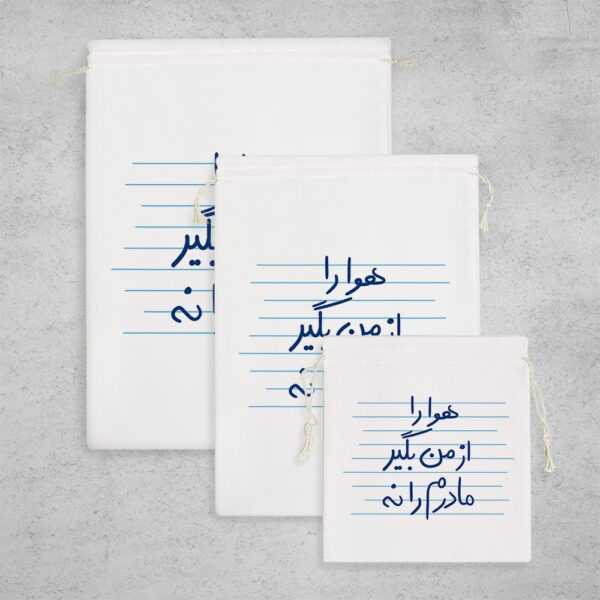 نه
هوا را
از من بگیر
نه
هوا را
از من بگیر
مادرم را نه